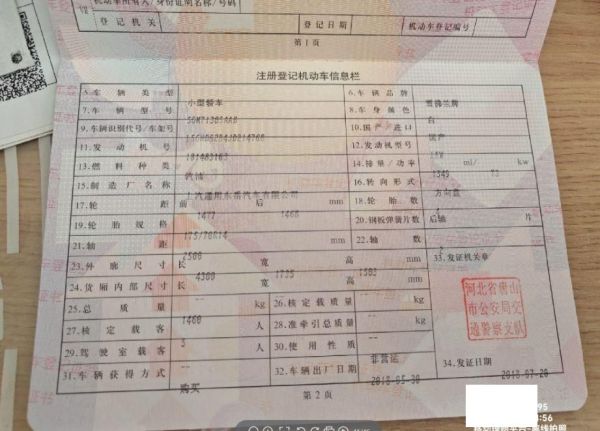 登记机关 登记日期 机动车登记编号
第1页
注册登记机动车信息栏
5.车辆类型 小型轿车 6.车辆品牌 雪佛兰牌
7.车辆型号 8.车身颜色 白
9.车辆识别代号/车架号 10.国产/进口 国产
11.发动机号 181483163 12.发动机型号
13.燃料种类 汽油 14.排量/功率 ml/ kw
15.制造厂名称 上汽通用东岳汽车有限公司 16.转向形式 方向盘
17.轮距 前 1477 后 1468 mm 18.轮胎数
19.轮胎规格 175/70R14 20.钢板弹簧片数 后轴 片
21.轴距 2500 mm 22.轴数 2
23.外廓尺寸 长 4300 宽 1735 高 mm 33.发证机关章
24.货厢内部尺寸 长 -- 宽 -- 高 -- mm
25.总质量 1460 kg 26.核定载质量 -- kg
27.核定载客 5 人 28.准牵引总质量 -- kg
29.驾驶室载客 -- 人 30.使用性质 非营运
31.车辆获得方式 购买 32.车辆出厂日期 2018-05-30 34.发证日期 2018-07-20
河北省唐山
市公安局交
通警察支队
第2页